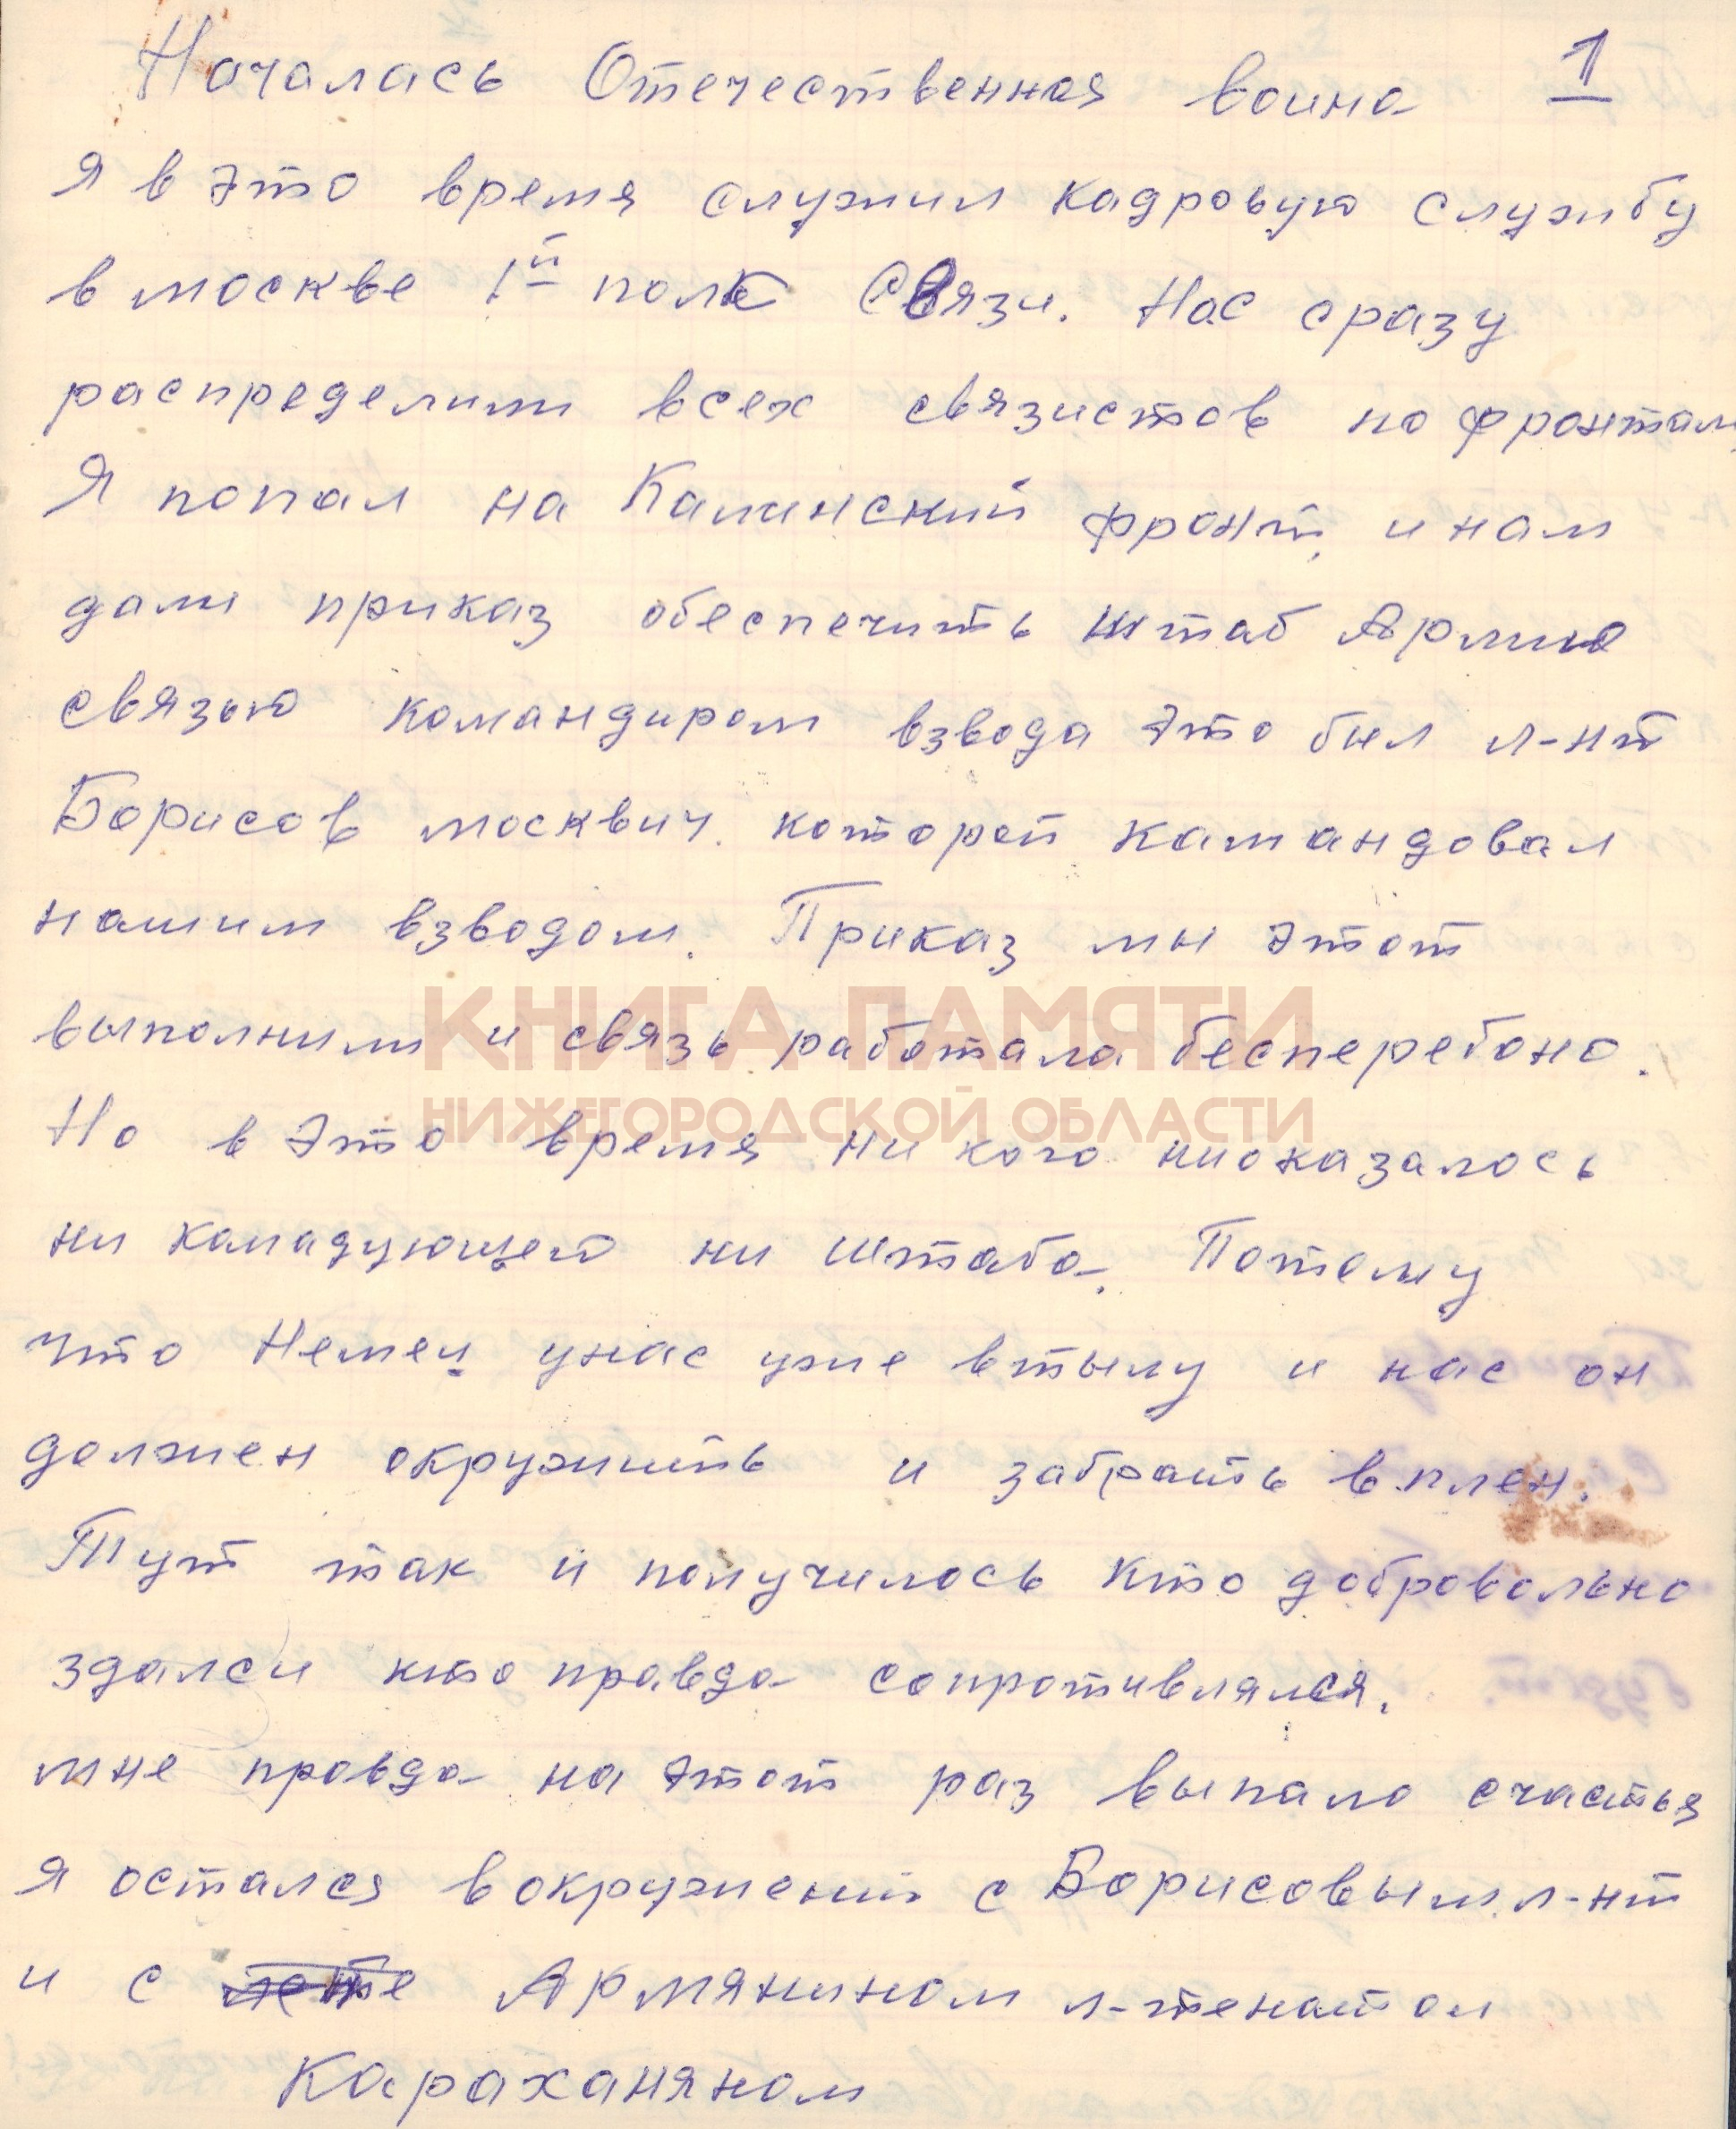 Началась Отечественная воина 1
Я в это время служил кадровую службу
в москве 1й полк Связи. Нас сразу
распределили всех связистов по фронтам
Я попал на Калинский фронт, и нам
дали приказ обеспечить штаб Армию
связью командиром взвода это был л-нт
Борисов москвич. которой камандовал
нашим взводом. Приказ мы этот
выполнили и связь работала бесперебоно.
КНИГА ПАМЯТИ
НИЖЕГОРОДСКОЙ ОБЛАСТИ
Но в это время ни кого ниоказалось
ни камадующего ни штаба. Потому
что Немец унас уже втылу и нас он
должен окружить и забрать в плен.
Тут так и получилось кто добровольно
здался кто правда сопротивлялся.
мне правда на этот раз выпало счастья
я остался в окружении с Борисовым л-нт
и с Армянином л-тенатом
Караханяном